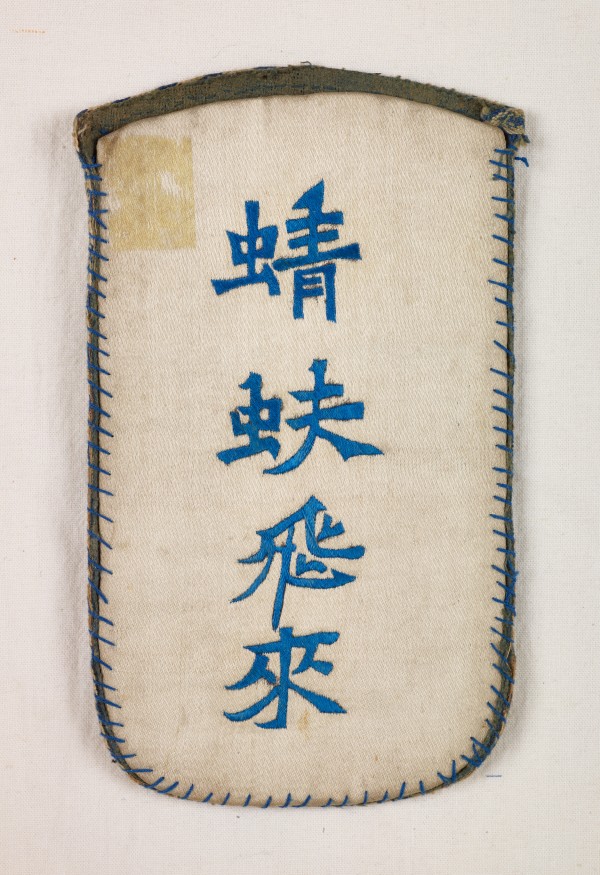 蜻蚨飛來